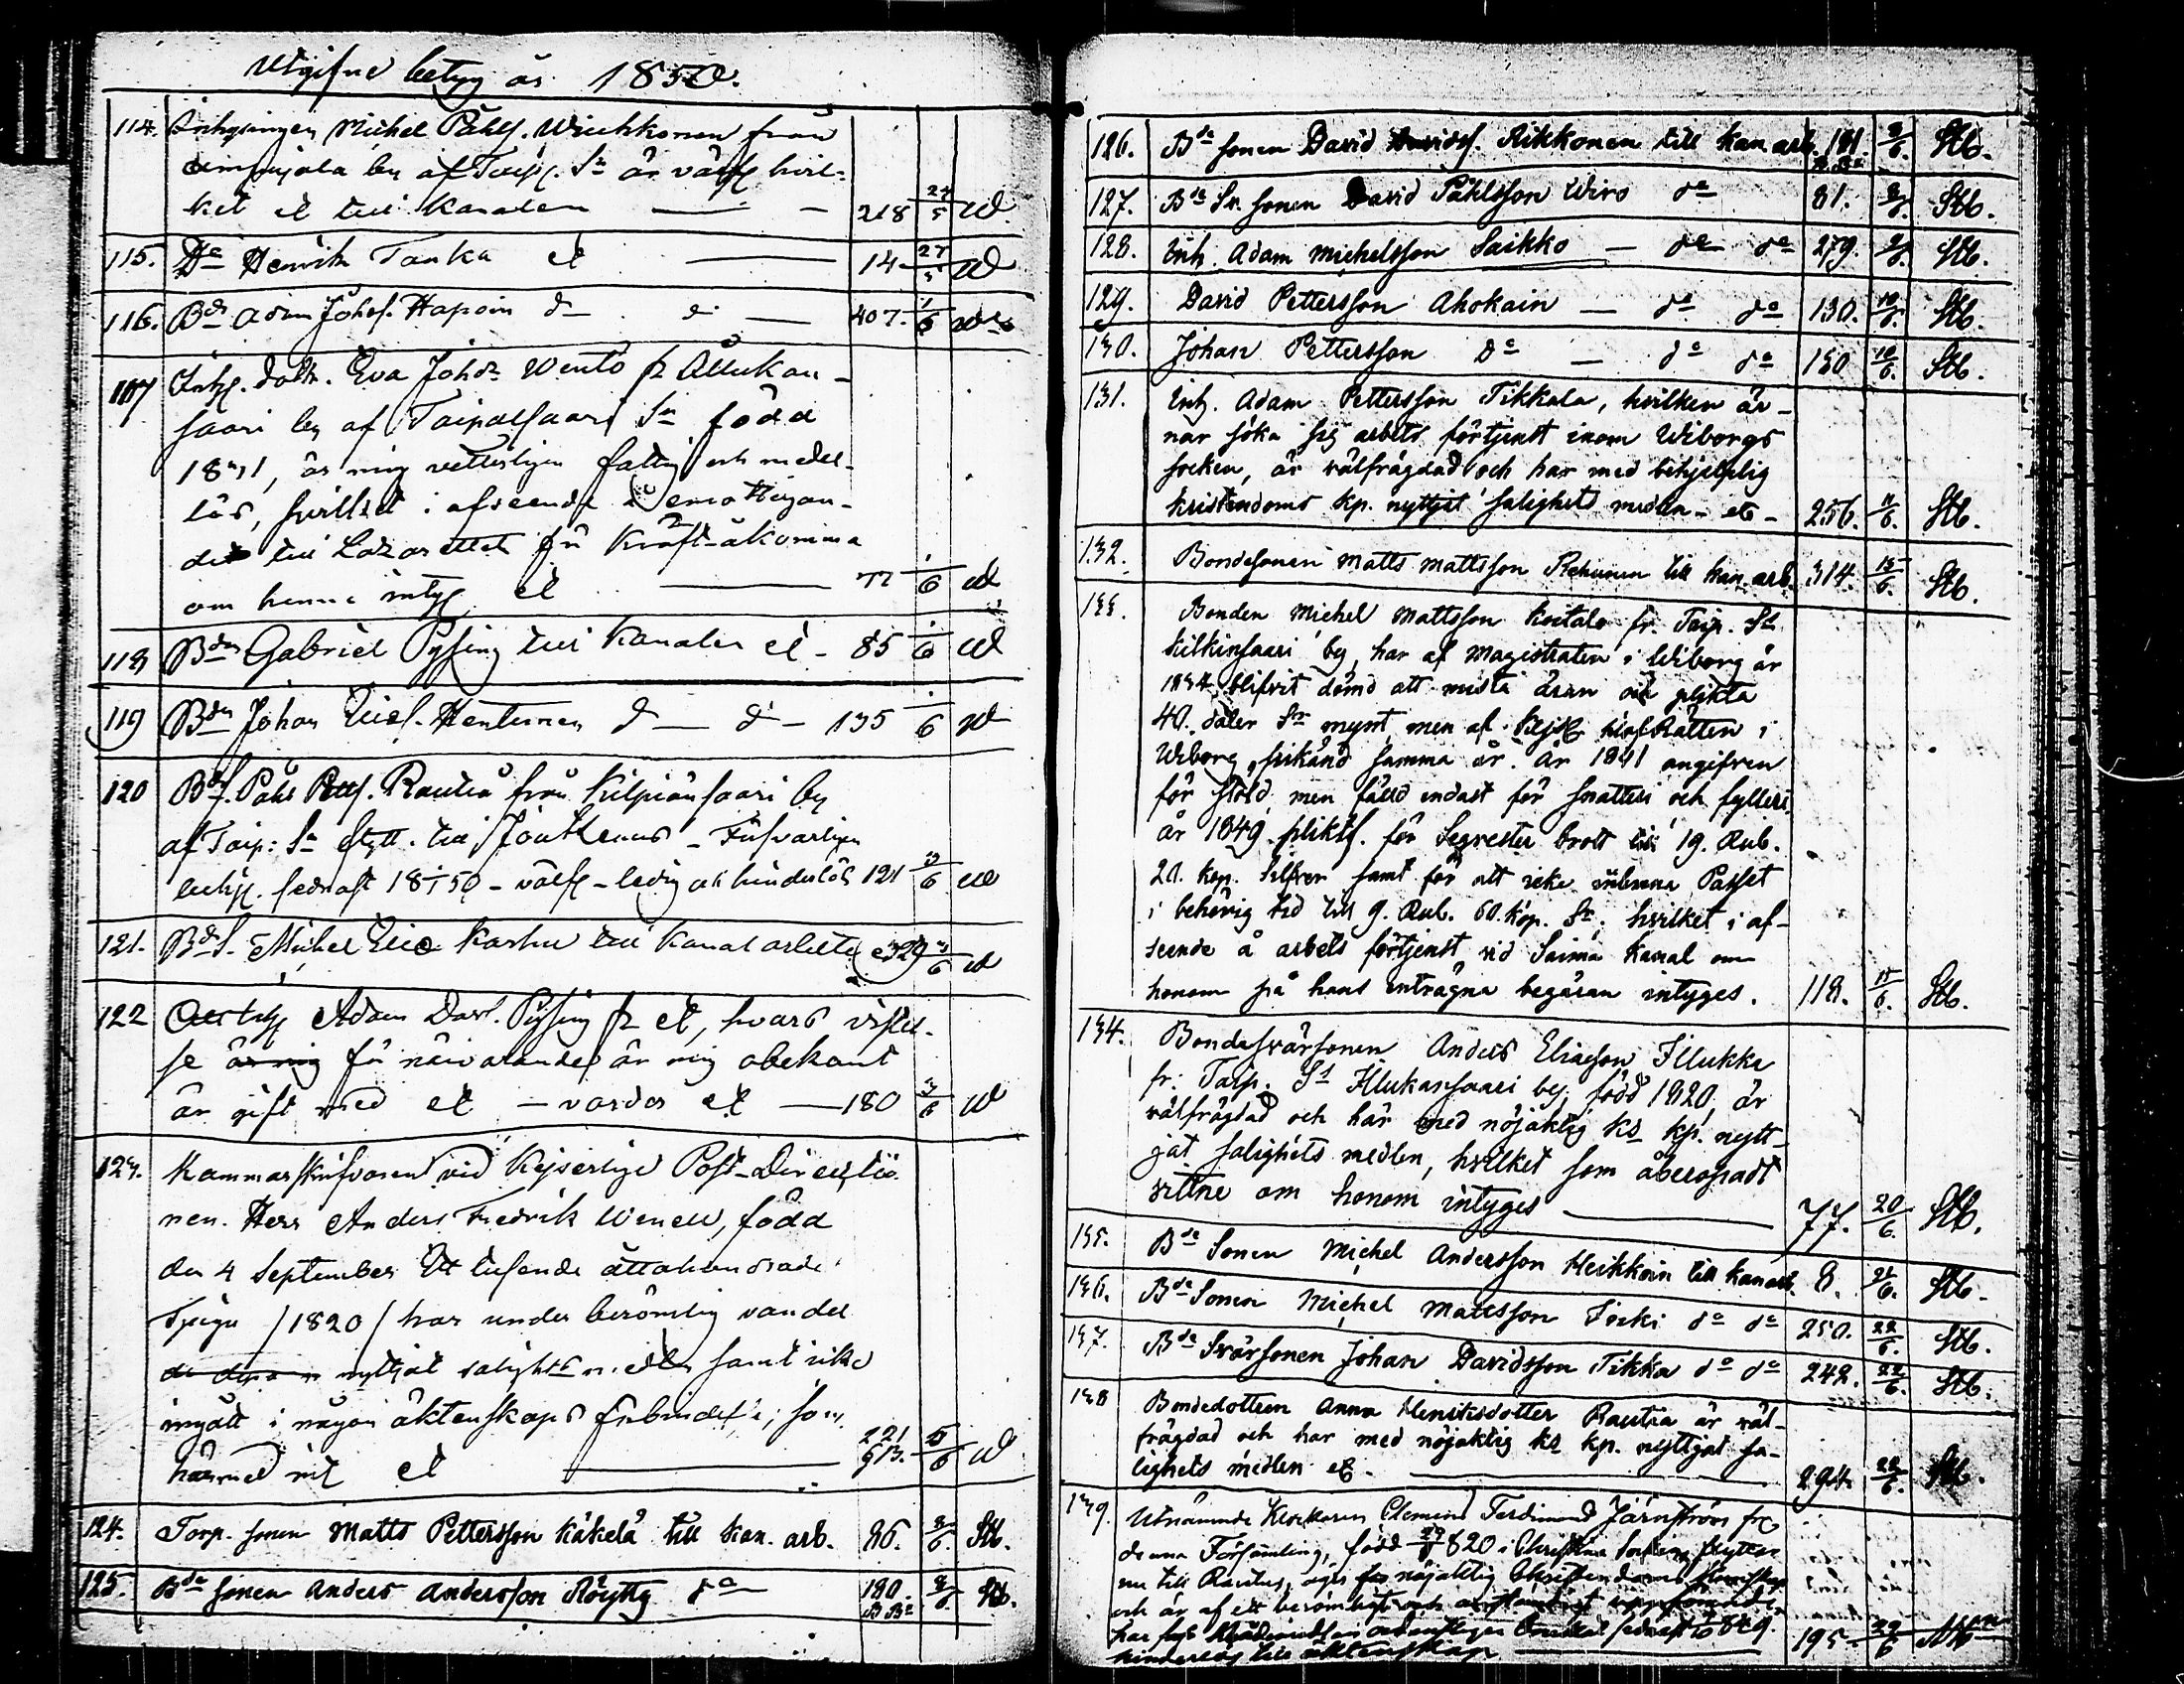 Utgifne betyg år 1850.
114. Inhysingen Michel Påhls. Wirkkonen från
by af Taip. Sn är välf. hvil-
ket et till Kanalen — 218 27/5 W
115. De Henrik Tanka et — 14 27/5 W
116. Bdn Adam Johs. Hapoin d — d — 407. 1/6 W
117 Inhs. dottr. Eva Johdr Wento fr Illukan-
saari by af Taipalsaari Sn född
1831, är mig vetterligen fattig och medel-
lös, hvilket i afseende å emottagan-
det till Lazarettet för Kräft-åkomma
om henne intyg. et — 77 1/6 W
118 Bdn Gabriel Pyssing till Kanalen et - 85 1/6 W
119 Bdn Johan Elies. Hentunen d — d — 135 1/6 W
120 Bds. Påhl Petts. Rautia från Kilpiänsaari by
af Taip: Sn flytt. till Joutsenus -
sednast 18 1/1 50 - välf - ledig och hinderlös 121 3/6 W
121. Bd S. Michel Elies Karhu till Kanal arbete et 329 3/6 W
122 Adam Dav. Pyssing fr et, hvars vistel-
se är mig för närvarande är mig obekant
är gift med et — vardar et — 180 3/6 W
123. Kammarskrifvaren vid Kejserliga Post-Directio-
nen. Herr Anders Fredrik Wenell, född
den 4 September Ett tusende åttahundrade
Tjugu /1820/ har under berömlig vandel
nyttjat salighets medlen samt icke
ingått i någon äktenskaps förbindelse; som
härmed int. et — 221 913. 5/6 W
124. Torp. sonen Matts Pettersson Käkelä till kan. arb. 86. 8/6. Stb.
125. Bde sonen Anders Andersson Röytty do 180. BBr 8/6. Stb.
126. Bde sonen David Davids. Rikkonen till kan. arb. 181. 8/6. Stb.
127. Bde Sv. sonen David Påhlsson Wiro do 81. 8/6. Stb.
128. Inh. Adam Michelsson Saikko — do do 279. 8/6. Stb.
129. David Pettersson Ahokain — do do 130. 10/6. Stb.
130. Johan Pettersson do — do do 130 10/6. Stb.
131. Inh. Adam Pettersson Tikkala, hvilken är-
nar söka sig arbets förtjenst inom Wiborgs
socken, är välfrägdad och har med behjelplig
kristendoms kp. nyttjat salighets medlen - etc - 256. 11/6. Stb.
132. Bondesonen Matts Mattsson Rehunen till kan. arb. 314. 15/6. Stb.
133. Bonden Michel Mattsson Koitalo fr. Taip. Sn
Kilkinsaari by, har af Magistraten i Wiborg år
1834 blifvit dömd att mista äran och plikta
40. daler Sr mynt, men af Kejsl. Hofrätten i
Wiborg, frikänd samma år. År 1841 angifven
för stöld men fälld endast för snatteri och fylleri,
år 1849 pliktf. för Segrester brott till 19. Rub.
20. kop. Silfver samt för att icke inlemna Passet
i behörig tid till 9. Rub. 60. kop. Sr; hvilket i af-
seende å arbets förtjenst vid Saima Kanal om
honom på hans enträgna begäran intyges. 118. 15/6. Stb.
134. Bondesvärsonen Anders Eliasson Illukka
fr: Taip. Sn Illukansaari by, född 1820, är
välfrägdad och har med nöjaktig ks kp. nytt-
jat salighets medlen, hvilket som åberopadt
vittne om honom intyges — 77. 20/6. Stb.
135. Bde Sonen Michel Andersson Heikkoin till kan arb. 8. 21/6. Stb.
136. Bde Sonen Michel Mattsson do do 250. 22/6. Stb.
137. Bde Svärsonen Johan Davidsson Tikka do do 242. 22/6. Stb.
138 Bondedottren Anna Henriksdotter Rautia är väl-
frägdad och har med nöjaktig ks kp. nyttjat sa-
lighets medlen et. — 294 22/6. Stb.
139. Utnämnde Klockaren Clemens Ferdinand Järnström från
denna Församling, född 1820 i Christina Socken, flyttar
nu till Rautus, äger nöjaktig Christendoms Kunskap
och är af ett berömligt och anständigt uppförande,
har
hinderlös till äktenskap — 195 22/6